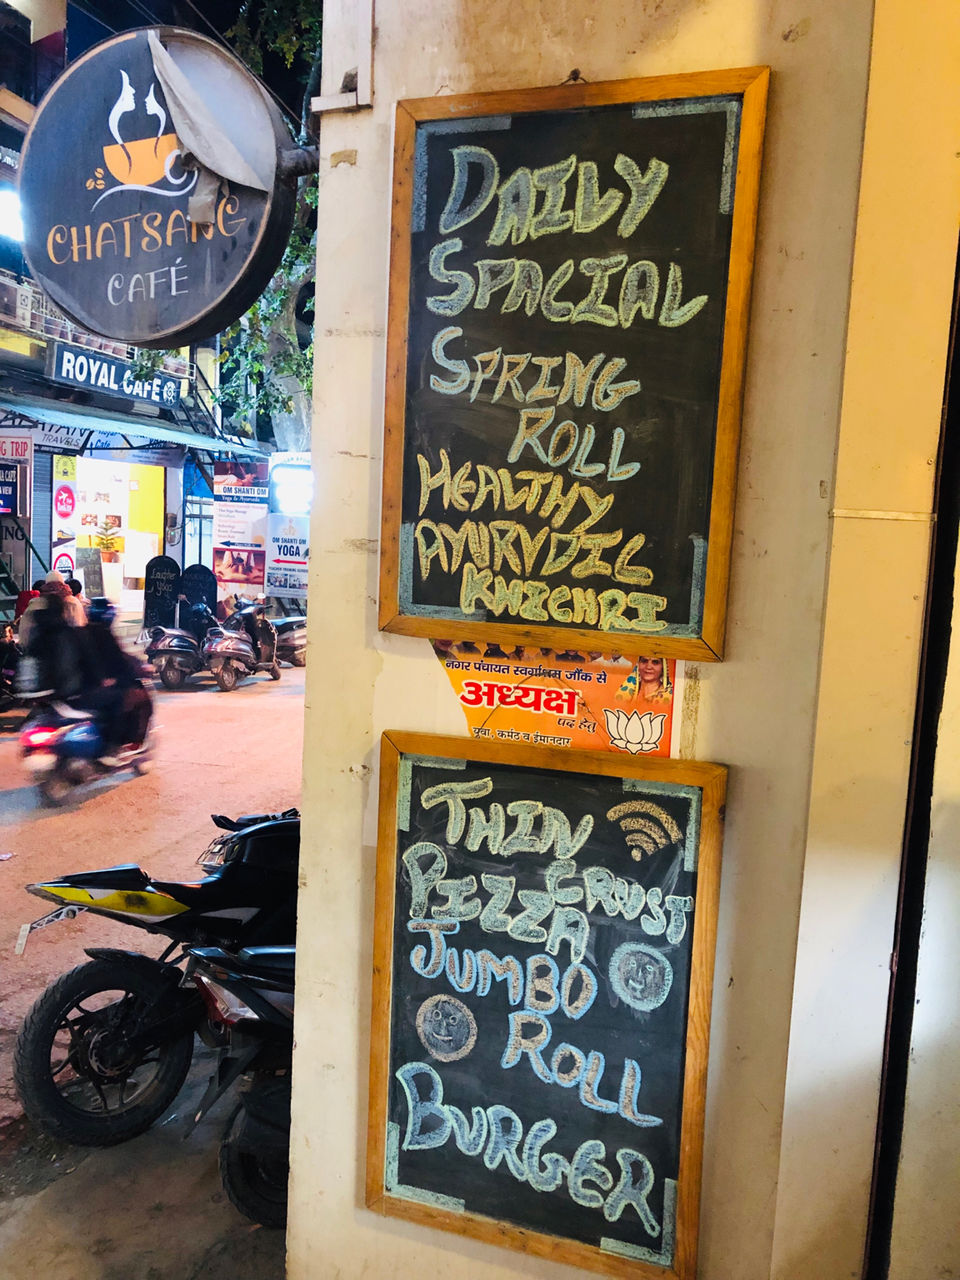 CHATSANG
CAFÉ
ROYAL CAFE
TRAVELS
NG TRIP
OM SHANTI OM
OM SHANTI OM
YOGA
DAILY
SPACIAL
SPRING
ROLL
HEALTHY
AYURVDIC
KHICHRI
नगर पंचायत स्वर्गाश्रम जौंक से
अध्यक्ष
पद हेतु
युवा, कर्मठ व ईमानदार
THIN
CRUST
PIZZA
JUMBO
ROLL
BURGER